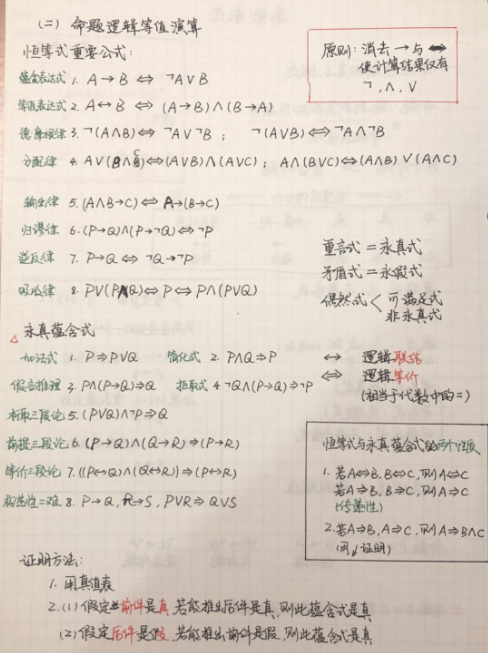 (二) 命题逻辑等值演算
恒等式重要公式:
原则: 消去 → 与 ⇔
使计算结果仅有
¬, ∧, ∨
蕴含表达式 1. A→B ⇔ ¬A∨B
等值表达式 2. A↔B ⇔ (A→B)∧(B→A)
德摩根律 3. ¬(A∧B)⇔ ¬A∨¬B ; ¬(A∨B)⇔¬A∧¬B
分配律 4. A∨(B∧C)⇔(A∨B)∧(A∨C); A∧(B∨C)⇔(A∧B)∨(A∧C)
输出律 5. (A∧B→C) ⇔ A→(B→C)
归谬律 6. (P→Q)∧(P→¬Q)⇔¬P
逆反律 7. P→Q ⇔ ¬Q→¬P
吸收律 8. P∨(P∧Q)⇔P⇔P∧(P∨Q)
重言式 = 永真式
矛盾式 = 永假式
偶然式 < 可满足式
非永真式
△ 永真蕴含式
加法式 1. P⇒P∨Q 简化式 2. P∧Q⇒P
假言推理 3. P∧(P→Q)⇒Q 拒取式 4. ¬Q∧(P→Q)⇒¬P
析取三段论 5. (P∨Q)∧¬P⇒Q
前提三段论 6. (P→Q)∧(Q→R)⇒(P→R)
等价三段论 7. ((P↔Q)∧(Q↔R))⇒(P↔R)
构造性二难 8. P→Q, R→S, P∨R⇒Q∨S
↔ 逻辑联结
⇔ 逻辑等价
(相当于代数中的=)
恒等式与永真蕴含式的两个性质
1. 若A⇔B, B⇔C, 则A⇔C
若A⇒B, B⇒C, 则A⇒C
(传递性)
2. 若A⇒B, A⇒C, 则A⇒B∧C
证明方法:
1. 用真值表
2. (1) 假定前件是真, 若能推出后件是真, 则此蕴含式是真
(2) 假定后件是假, 若能推出前件是假, 则此蕴含式是真